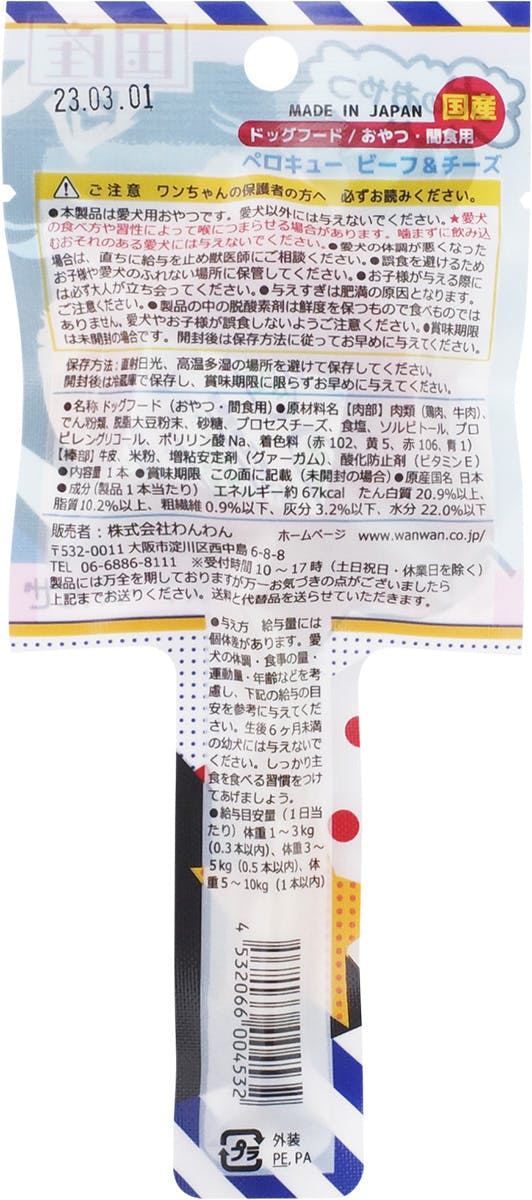 国産
23.03.01
のおやつ
MADE IN JAPAN 国産
ドッグフード / おやつ・間食用
ペロキュー ビーフ&チーズ
ご注意 ワンちゃんの保護者の方へ 必ずお読みください。
●本製品は愛犬用おやつです。愛犬以外には与えないでください。★愛犬
の食べ方や習性によって喉につまらせる場合があります。噛まずに飲み込
むおそれのある愛犬には与えないでください。●愛犬の体調が悪くなった
場合は、直ちに給与を止め獣医師にご相談ください。●誤食を避けるため
お子様や愛犬のふれない場所に保管してください。●お子様が与える際に
は必ず大人が立ち会ってください。●与えすぎは肥満の原因となります。
ご注意ください。●製品の中の脱酸素剤は鮮度を保つもので食べものでは
ありません。愛犬やお子様が誤食しないようご注意ください。●賞味期限
は未開封の場合です。開封後は保存方法に従ってお早めに与えてください。
保存方法:直射日光、高温多湿の場所を避けて保存してください。
開封後は冷蔵庫で保存し、賞味期限に限らずお早めに与えてください。
●名称 ドッグフード(おやつ・間食用)●原材料名【肉部】肉類(鶏肉、牛肉)、
でん粉類、脱脂大豆粉末、砂糖、プロセスチーズ、食塩、ソルビトール、プロ
ピレングリコール、ポリリン酸Na、着色料(赤102、黄5、赤106、青1)
【棒部】牛皮、米粉、増粘安定剤(グァーガム)、酸化防止剤(ビタミンE)
●内容量1本●賞味期限 この面に記載(未開封の場合)●原産国名 日本
●成分(製品1本当たり) エネルギー約67kcal たん白質20.9%以上、
脂質10.2%以上、粗繊維0.9%以下、灰分3.2%以下、水分22.0%以下
販売者:株式会社わんわん ホームページ www.wanwan.co.jp/
〒532-0011 大阪市淀川区西中島6-8-8
TEL 06-6886-8111 ※受付時間10~17時(土日祝日・休業日を除く)
製品には万全を期しておりますが万一お気づきの点がございましたら
上記までお送りください。送料と代替品を送らせていただきます。
●与え方 給与量には
個体差があります。愛
犬の体調・食事の量・
運動量・年齢などを考
慮し、下記の給与の目
安を参考に与えてくだ
さい。生後6ヶ月未満
の幼犬には与えないで
ください。しっかり主
食を食べる習慣をつけ
てあげましょう。
●給与目安量(1日当
たり)体重1~3kg
(0.3本以内)、体重3~
5kg(0.5本以内)、体
重5~10kg(1本以内)
4 532066 004532
プラ 外装
PE, PA